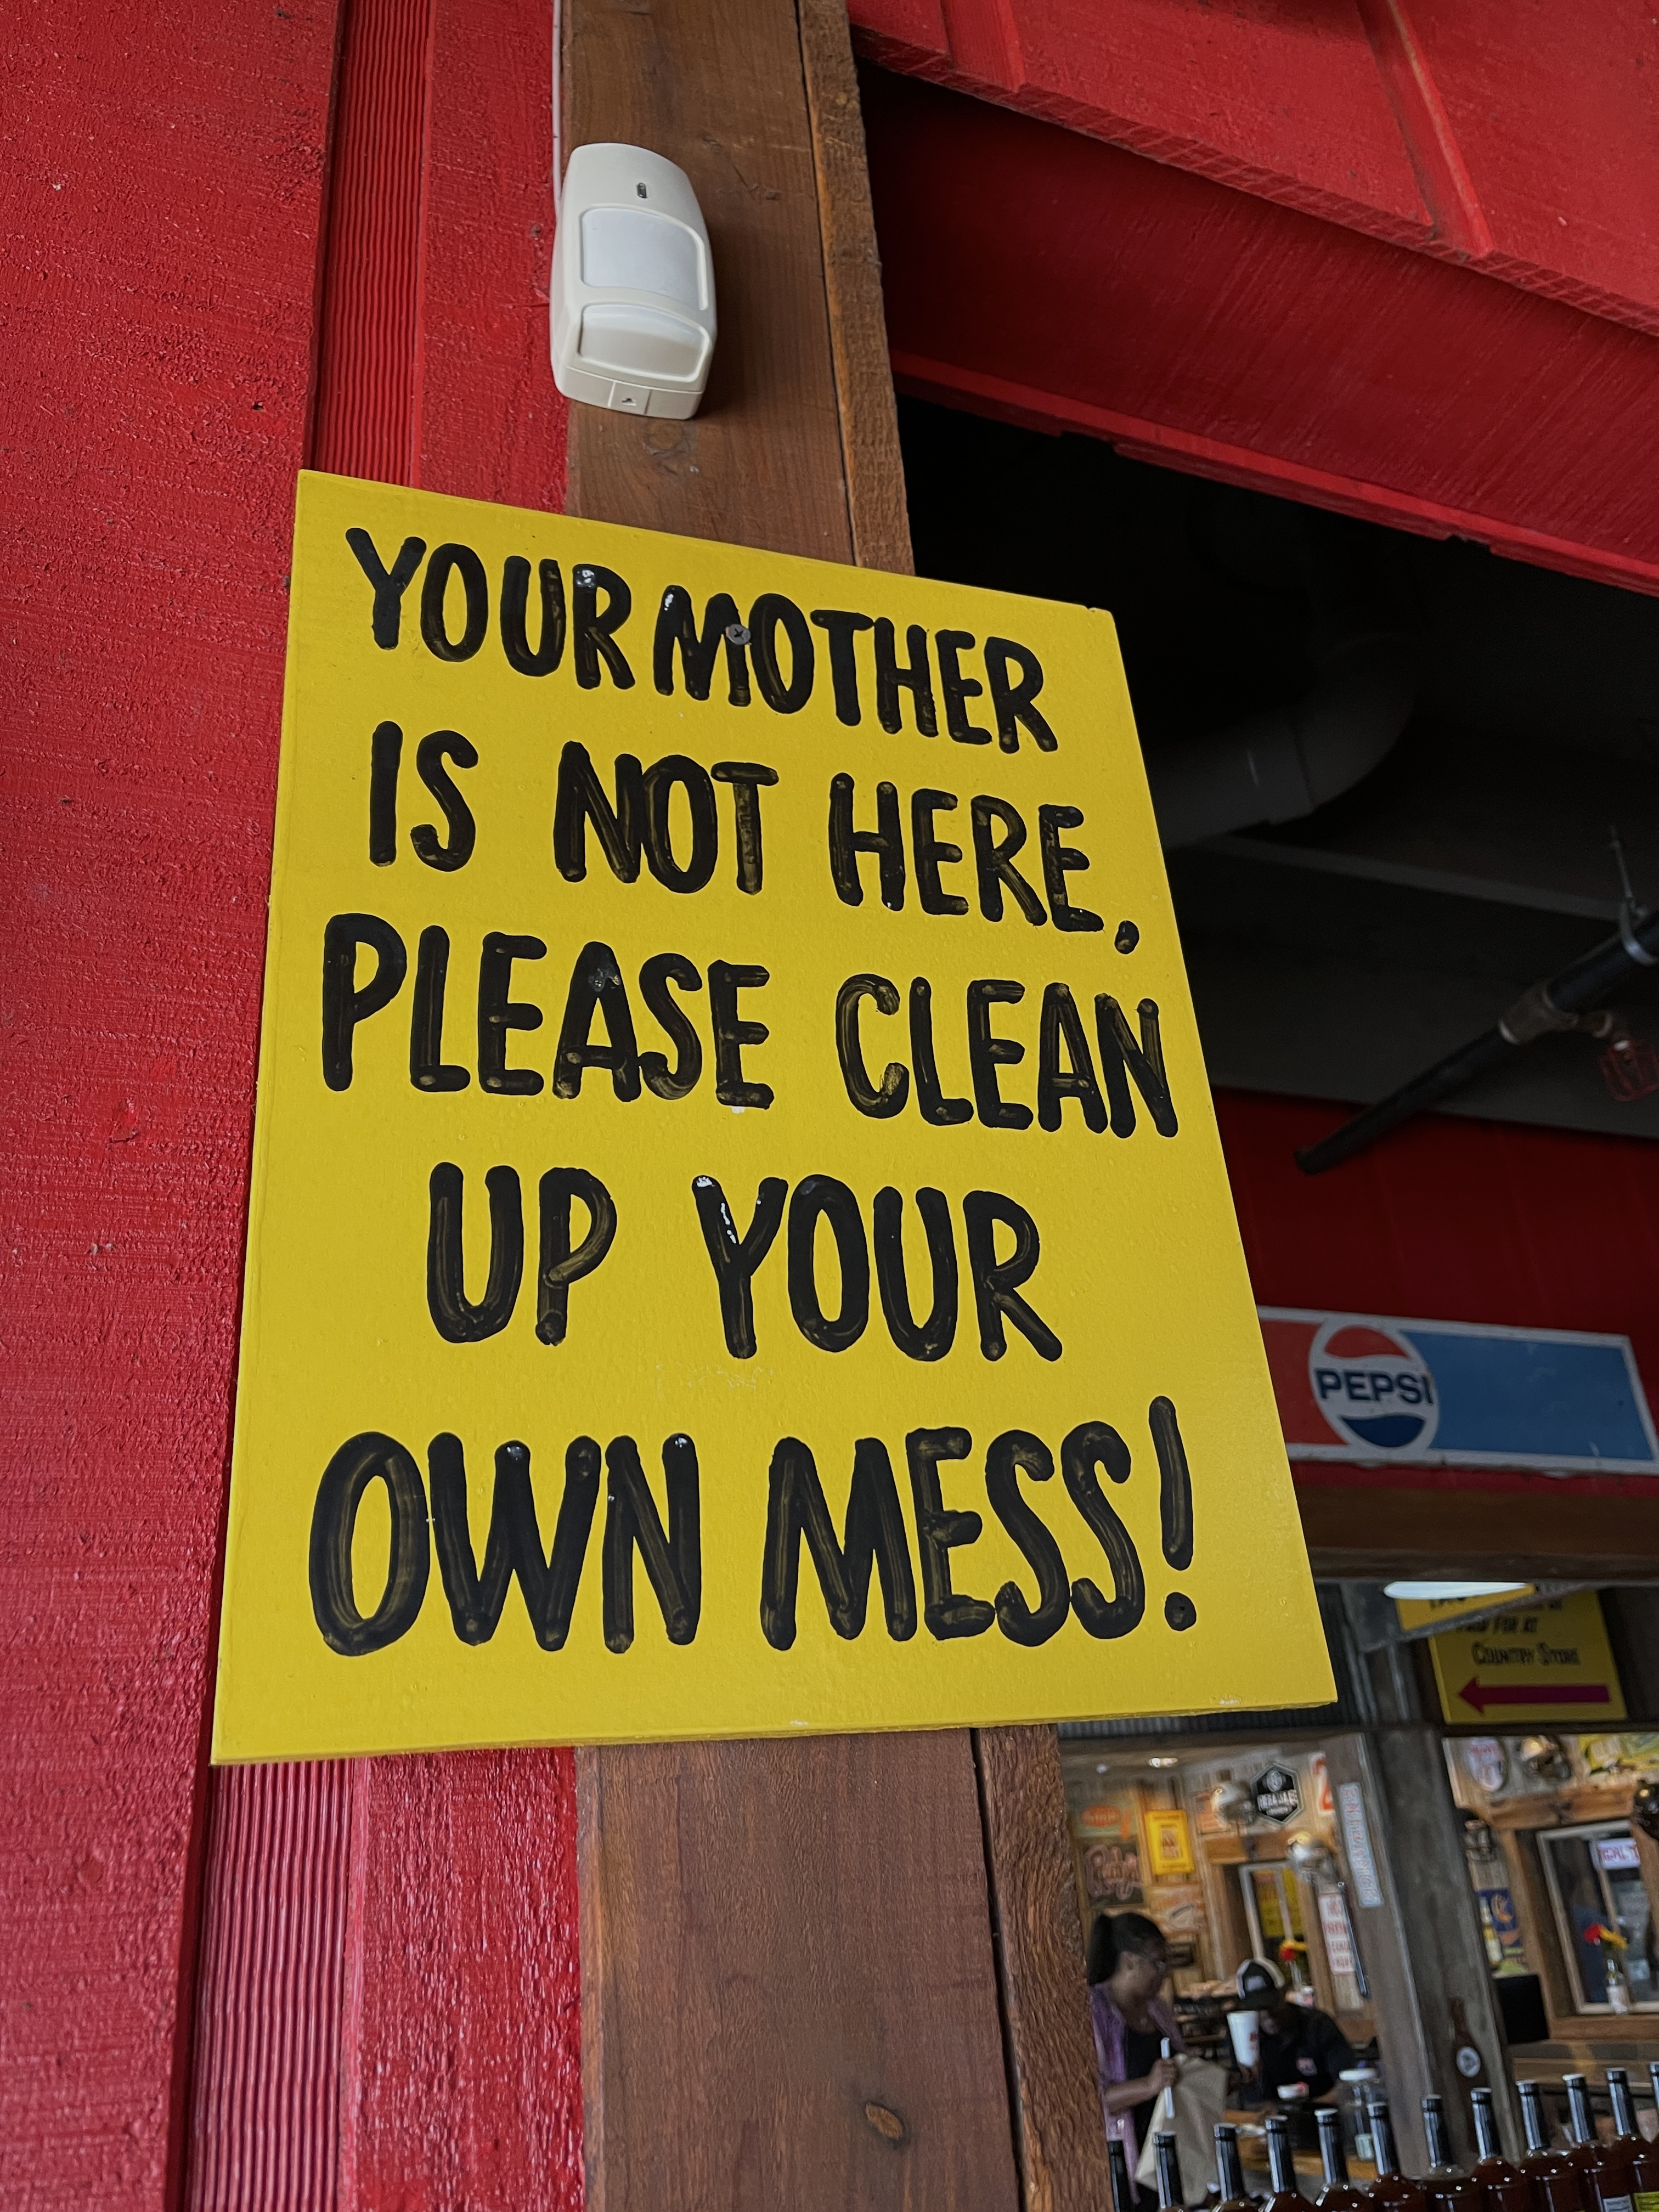 YOUR MOTHER
IS NOT HERE,
PLEASE CLEAN
UP YOUR
OWN MESS!
PEPSI
COUNTRY STORE